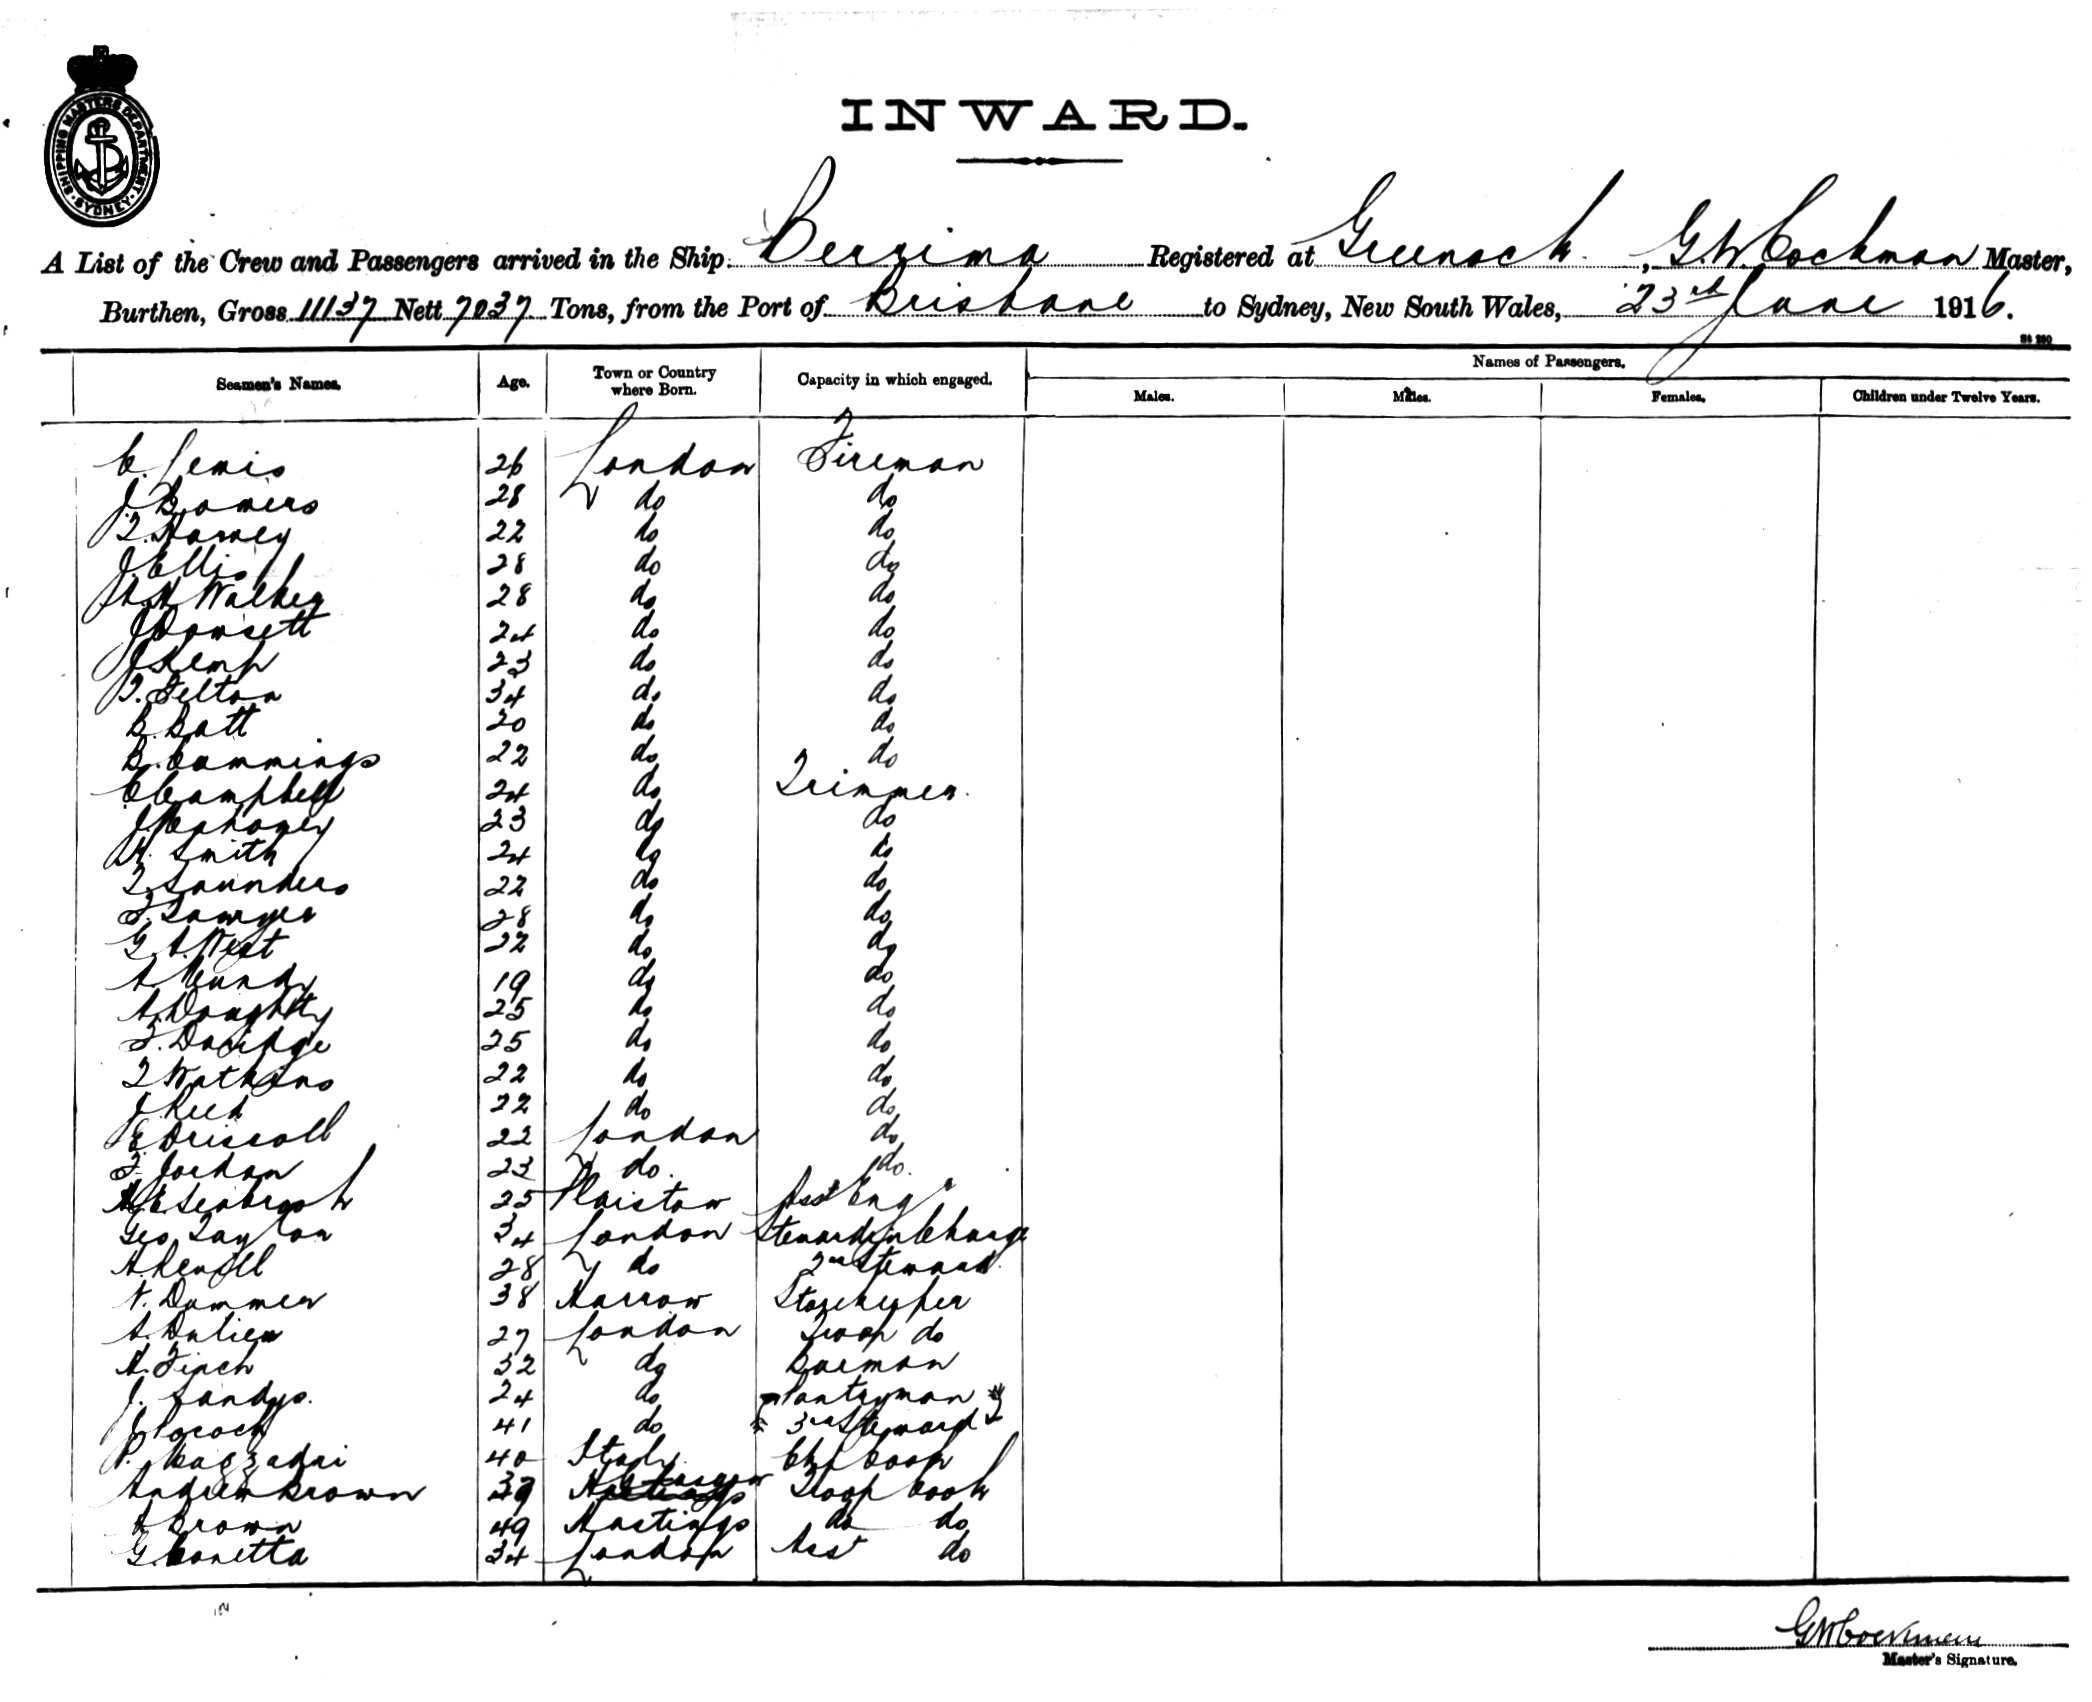 SHIPPING MASTERS DEPARTMENT · SYDNEY ·
INWARD.
A List of the Crew and Passengers arrived in the Ship Berrima Registered at Greenock, G.W. Cockman Master,
Burthen, Gross 11137 Nett 7037 Tons, from the Port of Brisbane to Sydney, New South Wales, 23rd June 1916.
Seamen's Names. Age. Town or Country where Born. Capacity in which engaged. Names of Passengers.
Males. Males. Females. Children under Twelve Years.
C. Lewis 26 London Fireman
J. Bowers 28 do do
T. Harvey 22 do do
J. Ellis 28 do do
Walker 28 do do
J Dowsett 24 do do
J Kemp 23 do do
T. Felton 34 do do
B. Batt 20 do do
B. Cummings 22 do do
C Campbell 24 do Trimmer
J. Mahoney 23 do do
H. Smith 24 do do
T. Saunders 22 do do
F. Sawyer 28 do do
G. A. West 22 do do
A. Mundy 19 do do
A. Doughty 25 do do
F. Davidge 25 do do
T Watkins 22 do do
J Reed 22 do do
E Driscoll 22 London do
F. Jordan 23 do. do.
A. E. Seabrook 25 Plaistow Asst Engr
Geo Taylor 34 London Steward in Charge
A. Revell 28 do 2nd Steward
N. Dummer 38 Harrow Storekeeper
A. 27 London Troop do
A. Finch 32 do Barman
J. Sandys. 24 do Pantryman
J Pocock 41 do 3rd Steward
P. 40 Italy Chf Cook
Andrew Brown 39 Glasgow Troop Cook
A Brown 49 Hastings do do
G. Conetta 34 London Asst do
GW Cockman
Master's Signature.